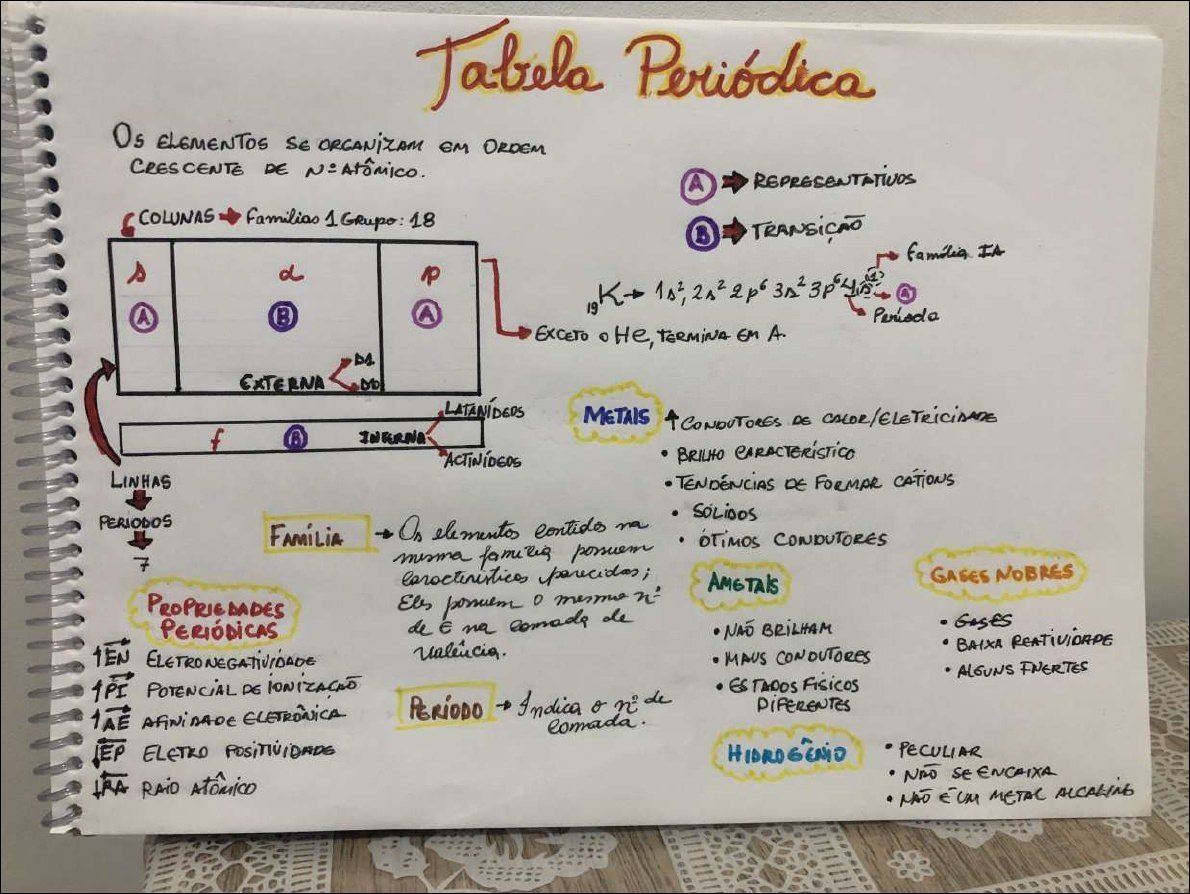 Tabela Periódica
OS ELEMENTOS SE ORGANIZAM EM ORDEM
CRESCENTE DE Nº ATÔMICO.
COLUNAS → Famílias 1 Grupo: 18
s d p
A B A
EXTERNA
D1
D10
f B INTERNA
LATANÍDEOS
ACTINÍDEOS
LINHAS
PERIODOS
7
A → REPRESENTATIVOS
B → TRANSIÇÃO
₁₉K → 1s², 2s² 2p⁶ 3s² 3p⁶ 4s¹
Família IA
A
Período
EXCETO O He, TERMINA EM A.
METAIS
↑ CONDUTORES DE CALOR/ELETRICIDADE
• BRILHO CARACTERÍSTICO
• TENDÊNCIAS DE FORMAR CÁTIONS
• SÓLIDOS
• ÓTIMOS CONDUTORES
FAMÍLIA → Os elementos contidos na
mesma família possuem
características parecidas;
Eles possuem o mesmo nº
de E na comada de
Valência.
PERÍODO → Indica o nº de
comada.
PROPRIEDADES
PERIÓDICAS
↑EN ELETRONEGATIVIDADE
↑PI POTENCIAL DE IONIZAÇÃO
↑AE AFINIDADE ELETRÔNICA
↓EP ELETRO POSITIVIDADE
↓RA RAIO ATÔMICO
AMETAIS
• NÃO BRILHAM
• MAUS CONDUTORES
• ESTADOS FÍSICOS
DIFERENTES
GASES NOBRES
• GASES
• BAIXA REATIVIDADE
• ALGUNS INERTES
HIDROGÊNIO
• PECULIAR
• NÃO SE ENCAIXA
• NÃO É UM METAL ALCALINO